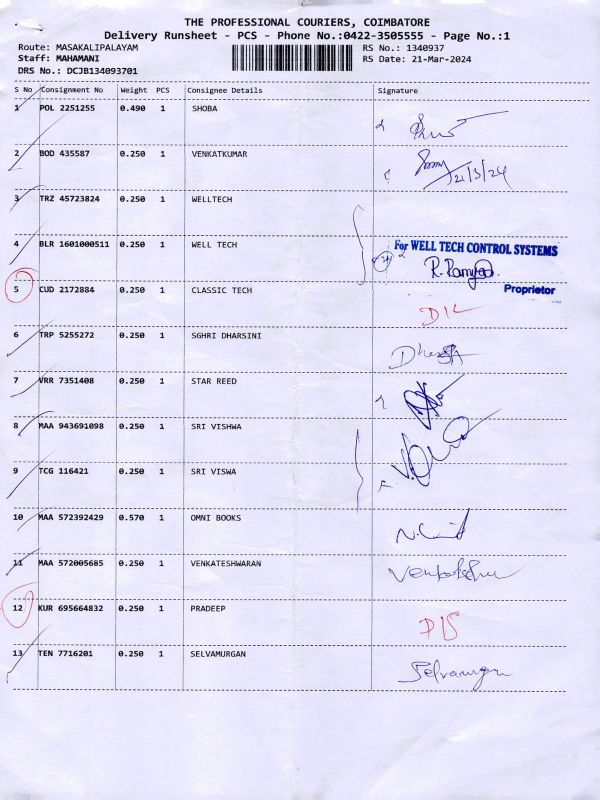 THE PROFESSIONAL COURIERS, COIMBATORE
Delivery Runsheet - PCS - Phone No.:0422-3505555 - Page No.:1
Route: MASAKALIPALAYAM RS No.: 1340937
Staff: MAHAMANI RS Date: 21-Mar-2024
DRS No.: DCJB134093701
S No Consignment No Weight PCS Consignee Details Signature
1 POL 2251255 0.490 1 SHOBA
2 BOD 435587 0.250 1 VENKATKUMAR
21/3/24
3 TRZ 45723824 0.250 1 WELLTECH
4 BLR 1601000511 0.250 1 WELL TECH
For WELL TECH CONTROL SYSTEMS
Proprietor
5 CUD 2172884 0.250 1 CLASSIC TECH
6 TRP 5255272 0.250 1 SGHRI DHARSINI
7 VRR 7351408 0.250 1 STAR REED
8 MAA 943691098 0.250 1 SRI VISHWA
9 TCG 116421 0.250 1 SRI VISWA
10 MAA 572392429 0.570 1 OMNI BOOKS
11 MAA 572005685 0.250 1 VENKATESHWARAN
12 KUR 695664832 0.250 1 PRADEEP
13 TEN 7716201 0.250 1 SELVAMURGAN
Selvamurgan